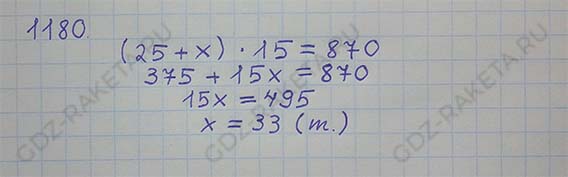 1180.
(25 + x) · 15 = 870
375 + 15x = 870
15x = 495
x = 33 (т.)
GDZ-RAKETA.RU
GDZ-RAKETA.RU
GDZ-RAKETA.RU